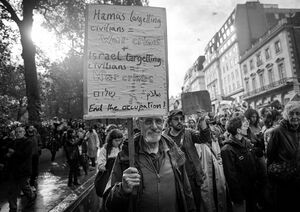 Hamas targetting
civilians =
war crimes
+
Israel targetting
civilians =
war crimes
שלום
End the occupation!